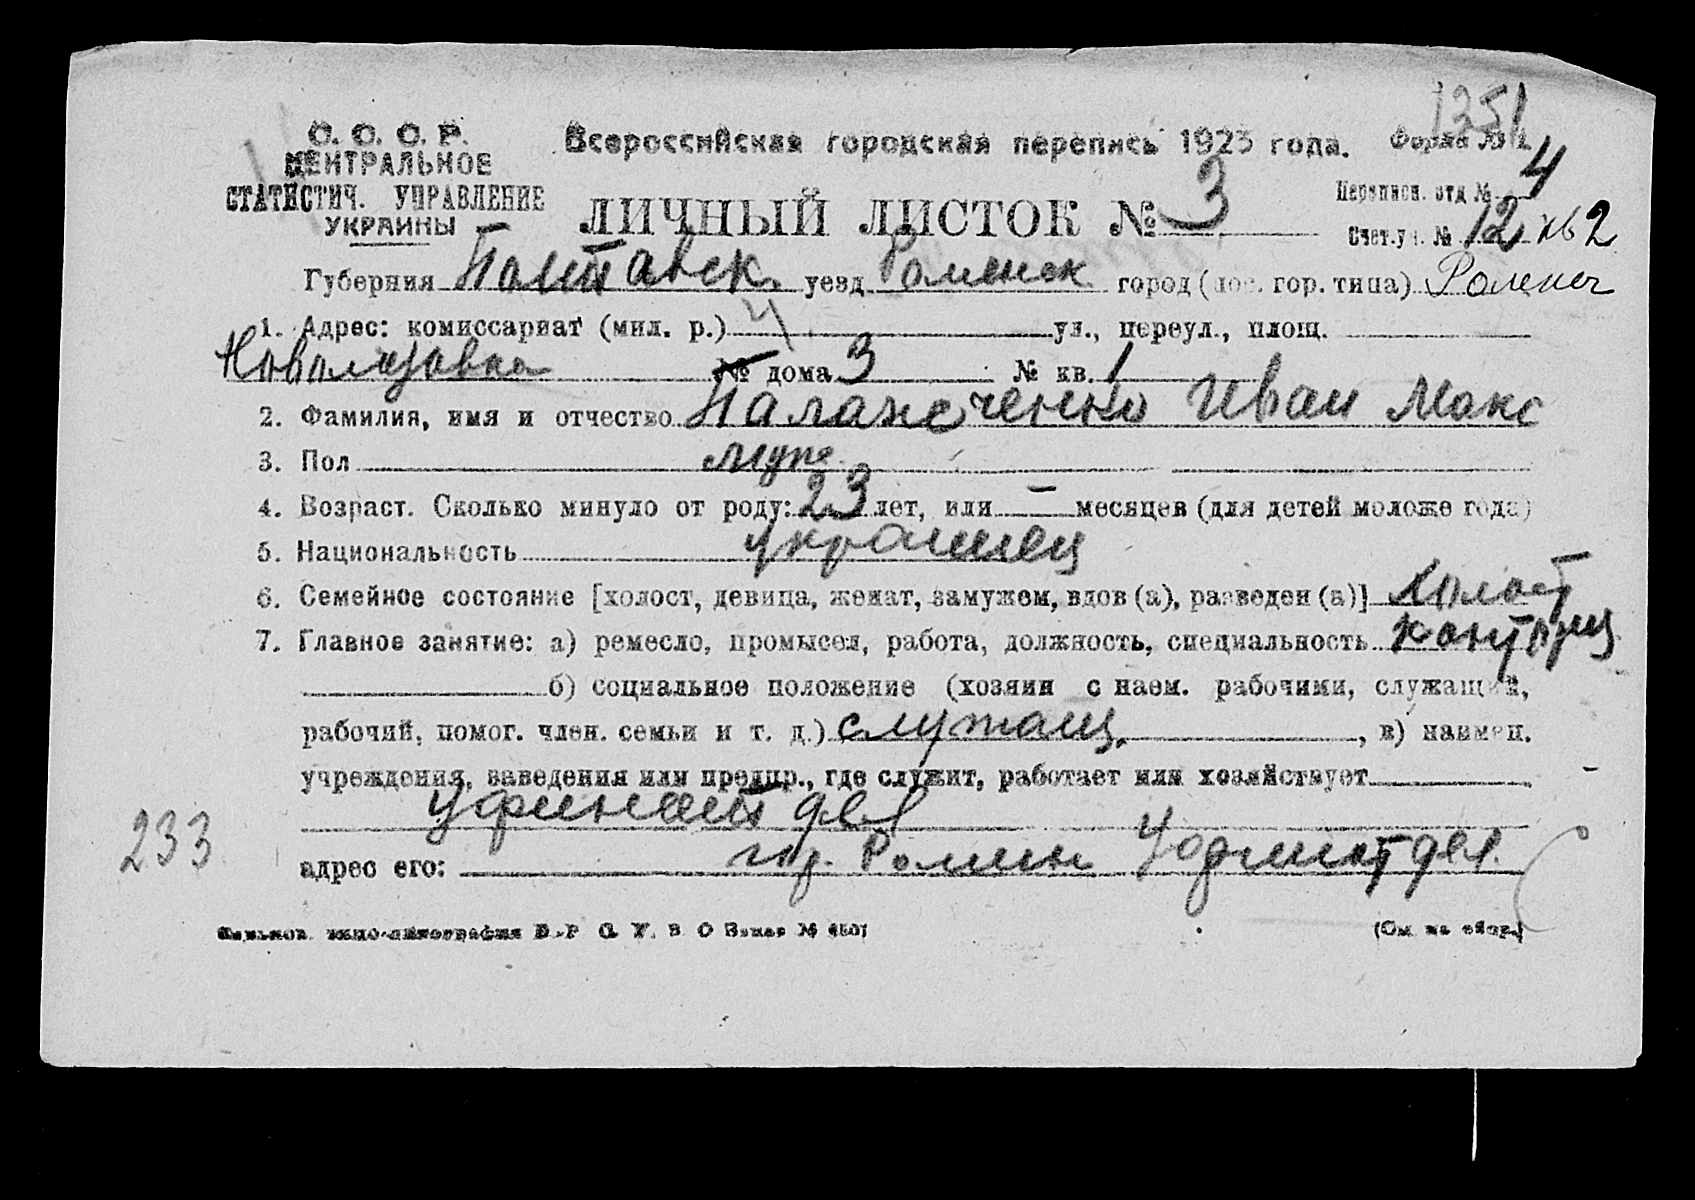 1251
С. С. С. Р. Всероссийская городская перепись 1923 года. Форма №
ЦЕНТРАЛЬНОЕ
СТАТИСТИЧ. УПРАВЛЕНИЕ
УКРАИНЫ
Переписн. отд № 4
ЛИЧНЫЙ ЛИСТОК № 3
Счет. уч. № 12 кв 2
Губерния Полтавск. уезд Роменск город (пос. гор. типа) Ромен
1. Адрес: комиссариат (мил. р.) ул., переул., площ.
№ дома 3 № кв. 1
2. Фамилия, имя и отчество Иван Макс
3. Пол муж.
4. Возраст. Сколько минуло от роду: 23 лет, или — месяцев (для детей моложе года)
5. Национальность украинец
6. Семейное состояние [холост, девица, женат, замужем, вдов (а), разведен (а)] Холост
7. Главное занятие: а) ремесло, промысел, работа, должность, специальность
б) социальное положение (хозяин с наем. рабочими, служащий,
рабочий, помог. член. семьи и т. д.) служащ. , в) наимен.
учреждения, заведения или предпр., где служит, работает или хозяйствует
233
адрес его: гор. Ромны
(См на обор.)